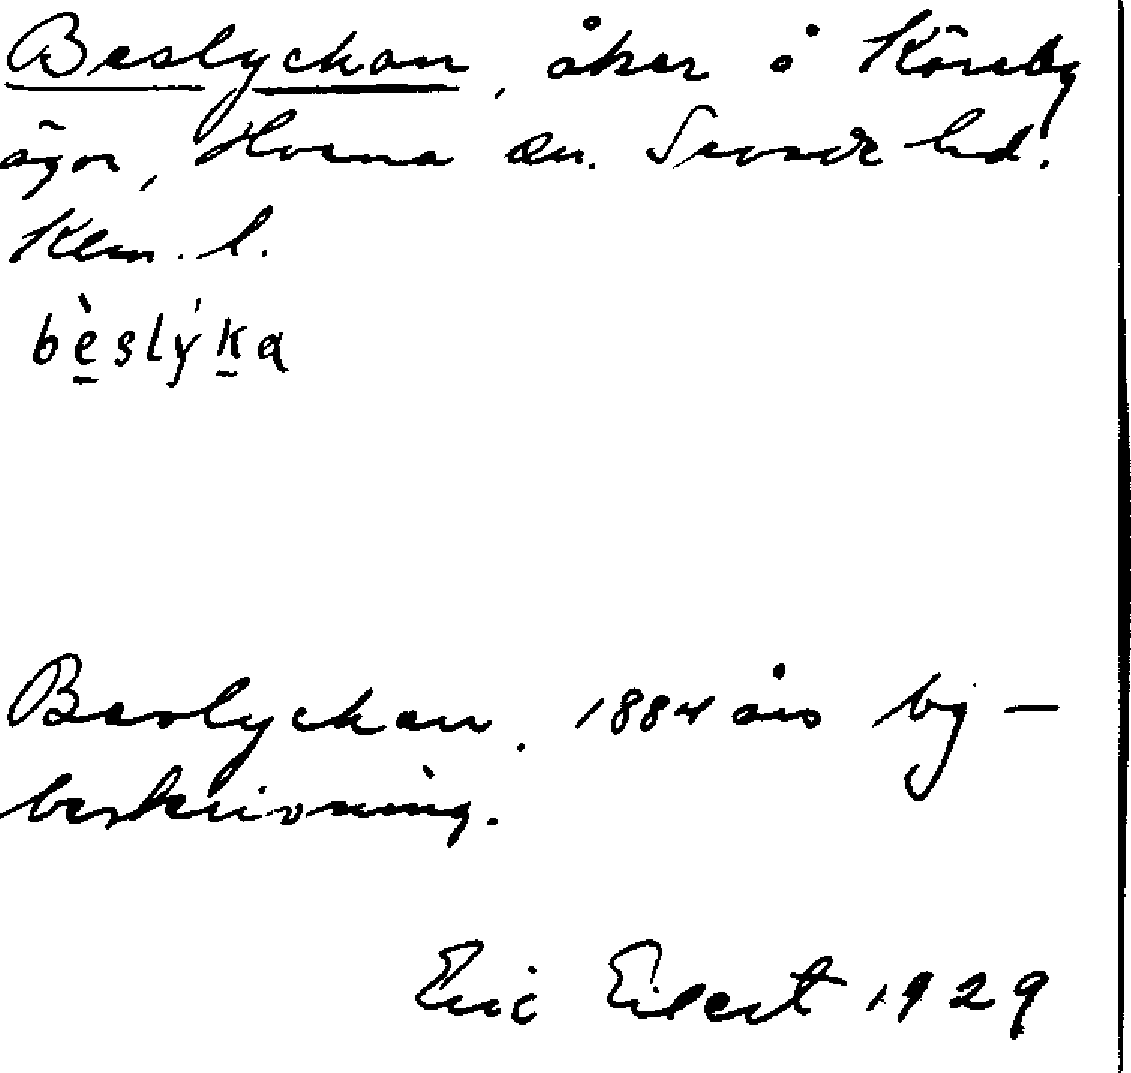 Beslyckan, åker å Kåreby
ägor, Hvena sn. Sevede hd.
Klm. l.
bèslýka
Beslyckan. 1884 års by-
beskrivning.
Eric Eilert 1929